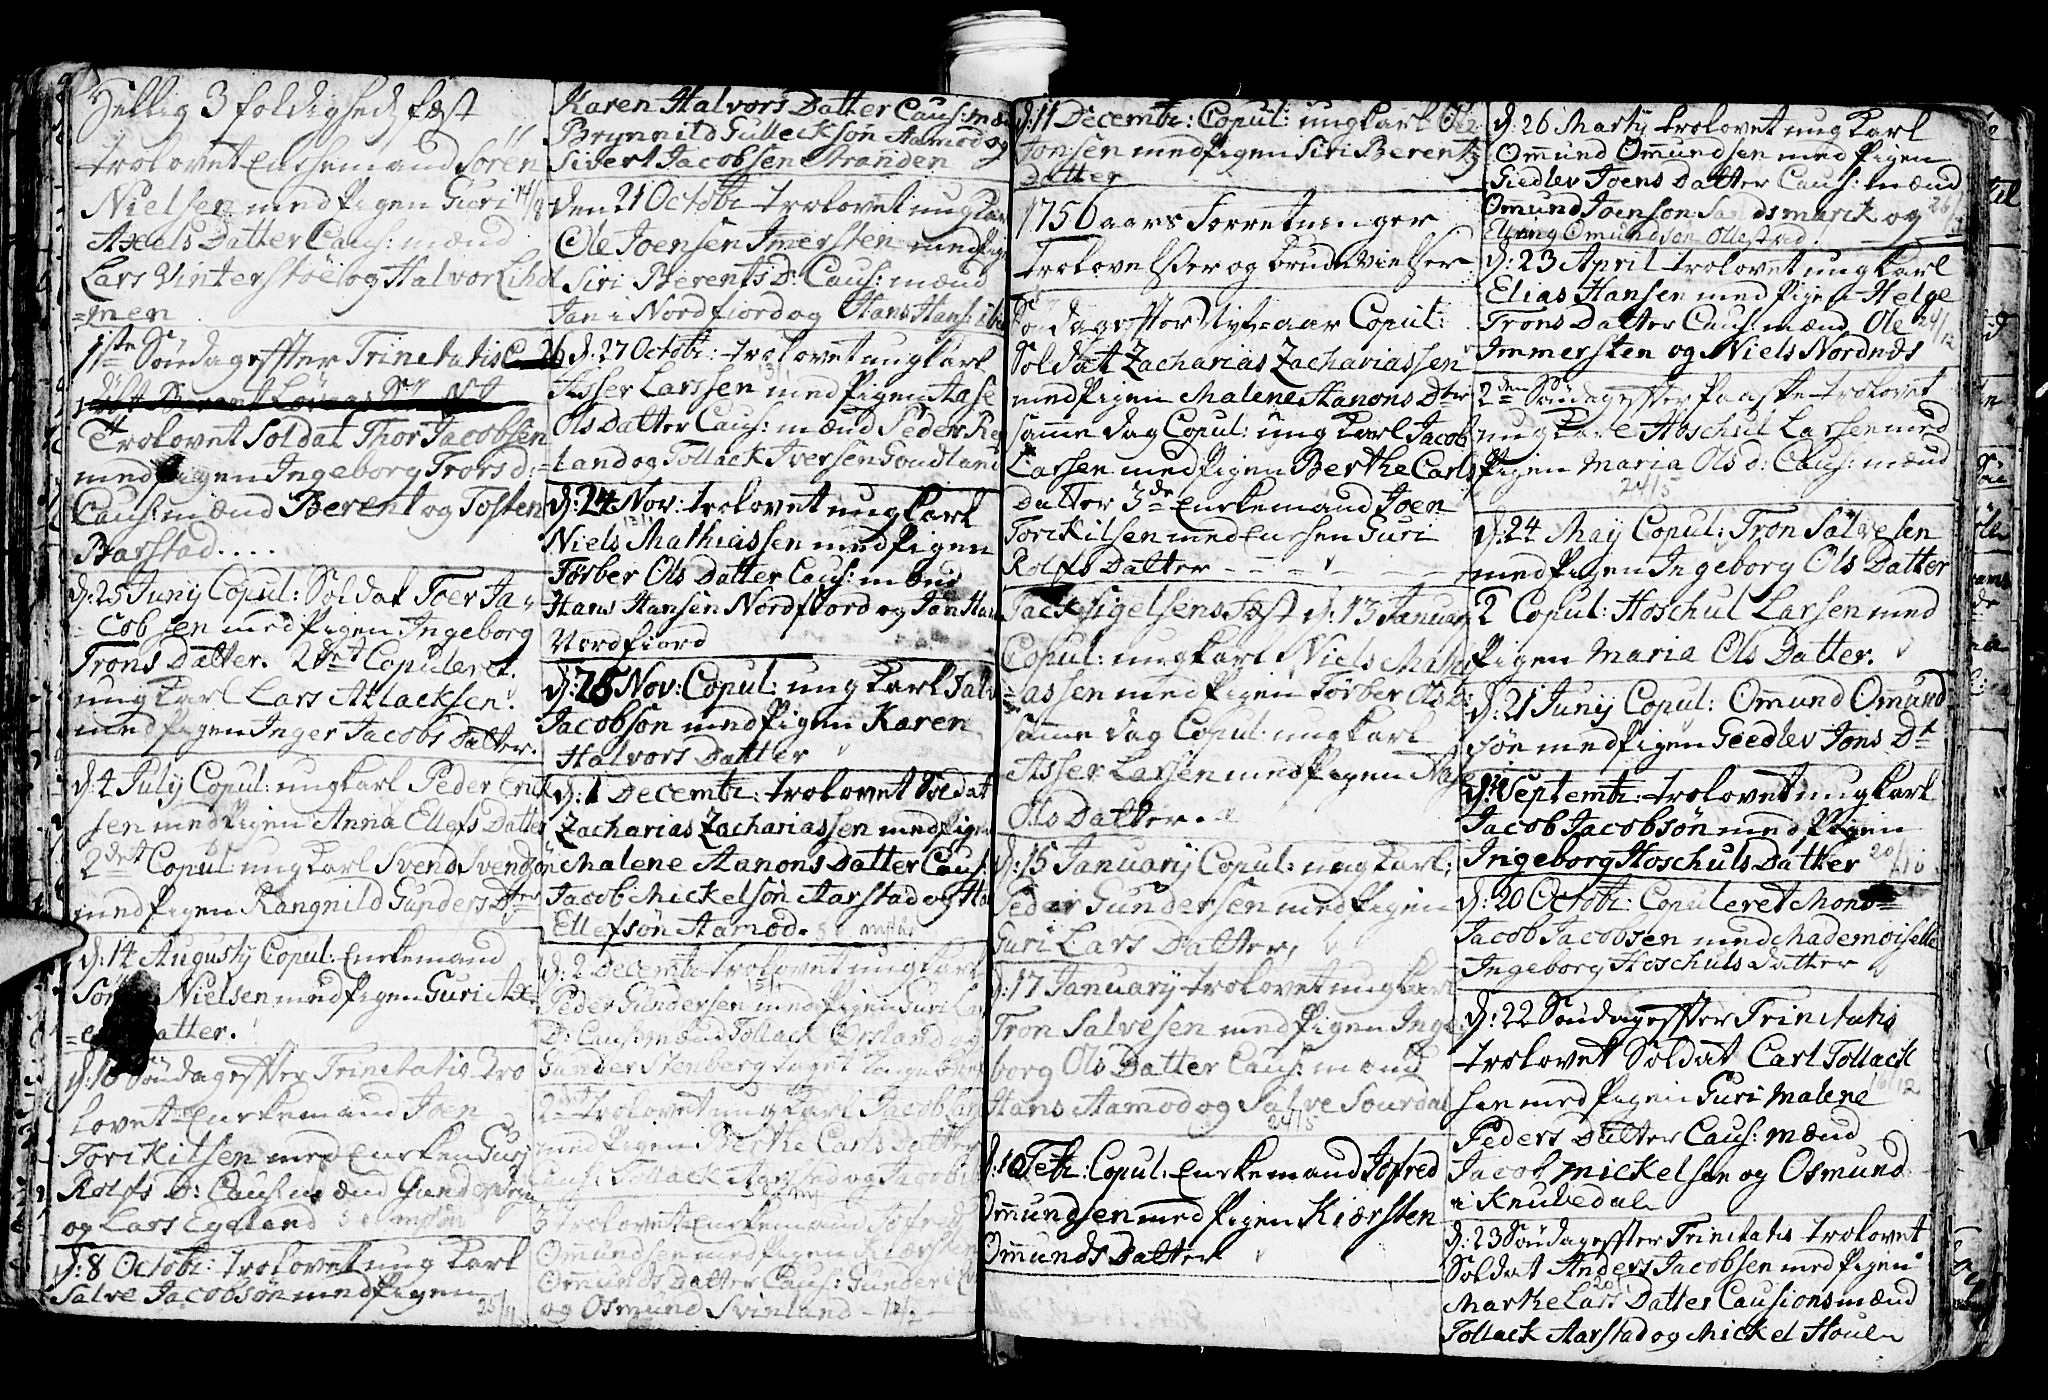 Hellig 3 foldigheds fest
trolovet Enchemand Sören
Nielsen med Pigen Guri 14/8
Axels Datter Caus: mænd
Lars Vinterstöe og Halvor Lihol
=men
1ste Söndag effter Trinitatis
Trolovet Soldat Thor Jacobsen
med Pigen Ingeborg Trons d:
Caus: mænd Berent og Tosten
Barstad....
d: 25 Junij Copul: Soldat Toer Ja=
cobsen med Pigen Ingeborg
Trons Datter. 2det Copuleret.
ung karl Lars Atlacksen
med Pigen Inger Jacobs Datter.
d: 4 July Copul: ungkarl Peder Erick
sen med Pigen Anna Ellefs Datter
2det Copul: ung karl Svend Svendsön
med Pigen Rangnild Gunders Dtter
d: 14 Augustij Copul: Enkemand
Sören Nielsen med Pigen Guri Ax
=els Datter.
d: 16 Söndag effter Trinitatis tro
lovet Enkemand Joen
Torkilsen med Enken Guri
Rolfs D: Caus: mænd Gunder
og Lars Egeland
d: 8 Octobr: trolovet ung karl
Salve Jacobsön med Pigen
Karen Halvors Datter Caus: mæ
Brynnild Gulleckson Aamod og
Sivert Jacobsen Stranden
den 21 Octobr trolovet ung kar
Ole Joensen Imersten med Pige
Siri Berents D: Caus: mænd
Jan i Nordfiord og Hans Hans: ibi
d: 27 Octobr: trolovet ung karl
Asser Larssen med Pigen Aase
Ols Datter Caus: mænd Peder Reg
=land og Tollack Iversen Goudland
d: 24 Nov: trolovet ung karl
Niels Mathiassen med Pigen
Törber Ols Datter Caus: mænd
Hans Hansen Nordfiord og Jan Han
Nordfiord
d: 25 Nov: Copul: ung karl Salv
Jacobsön med Pigen Karen
Halvors Datter
d: 1 Decembr: trolovet Soldat
Zacharias Zachariassen med Pigen
Malene Aanons Datter Caus:
Jacob Mickelsön Aarstad og Ha
Ellefsön Aamod.
d: 2 Decembr trolovet ung karl
Peder Gundersen med Pigen Guri Lar
D: Caus: mænd Tollack Örsland og
Gunder Stenberg
2det trolovet ung karl Jacob Lar
med Pigen Berthe Carls Datter
Caus: Tollack Aarstad og Jacob
3 trolovet Enkemand Jöfred
Omundsen med Pigen Kiersten
Omunds Datter Caus: Gunder
og Osmund Svinland
d: 11 Decembr: Copul: ungkarl Ole
Jonsen med Pigen Siri Berents
Datter
1756 aars Forretninger
Trolovelser og Brude Vielser
Söndag effter Nyt=aar Copul:
Soldat Zacharias Zachariassen
med Pigen Malene Aanons Dter
samme dag Copul: ung karl Jacob
Larsen med Pigen Berthe Carls
Datter 3de Enkemand Joen
Torkilsen med Enken Guri
Rolfs Datter
Tacksigelsens Fest d: 13 Januarij
Copul: ungkarl Niels Math
=iassen med Pigen Törber Ols D:
samme dag Copul: ungkarl
Asser Larsen med Pigen Aase
Ols Datter.
d: 15 Januarij Copul: ungkarl;
Peder Gundersen med Pigen
Guri Lars Datter,
d: 17 Januarij trolovet ungkarl
Tron Salvesen med Pigen Inge
borg Ols Datter Caus: mænd
Hans Aamod og Salve Sourdal
24/5
d: 10 Febr: Copul: Enkemand Jöfred
Omundsen med Pigen Kiærsten
Omunds Datter
d: 26 Martij trolovet ung karl
Omund Omundsen med Pigen
Giedlev Joens Datter Caus: mænd
Omund Joenson Sandsmarck og
Elling Omundsön Ollestad
d: 23 April trolovet ung karl
Elias Hansen med Pigen Helge
Trons Datter Caus: mænd Ole
Immersten og Niels Nordnes
2den Söndag effter Paaske trolovet
ung karl Hoschul Larsen med
Pigen Maria Ols d: Caus: mænd
24/5
d: 24 Maij Copul: Tron Salvesen
med Pigen Ingeborg Ols Datter
2 Copul: Hoschul Larsen med
Pigen Maria Ols Datter.
d: 21 Junij Copul: Omund Omund
sön med Pigen Geedlev Jons Dt
Septembr: trolovet ung karl
Jacob Jacobsön med Pigen
Ingeborg Hoschuls Datter 20/10
d: 20 Octobr: Copuleret Mons:
Jacob Jacobsen med Mademoiselle
Ingeborg Hoschuls Datter
d: 22 Söndag effter Trinitatis
trolovet Soldat Carl Tollack
sen med Pigen Guri Malene
Peders Datter Caus: mænd
Jacob Mickelsen og Osmund
i Knubedal
d: 23 Söndag effter Trinitatis trolovet
Soldat Anders Jacobsen med Pigen
Marthe Lars Datter Causions mænd
Tollack Aarstad og Mickel Houen